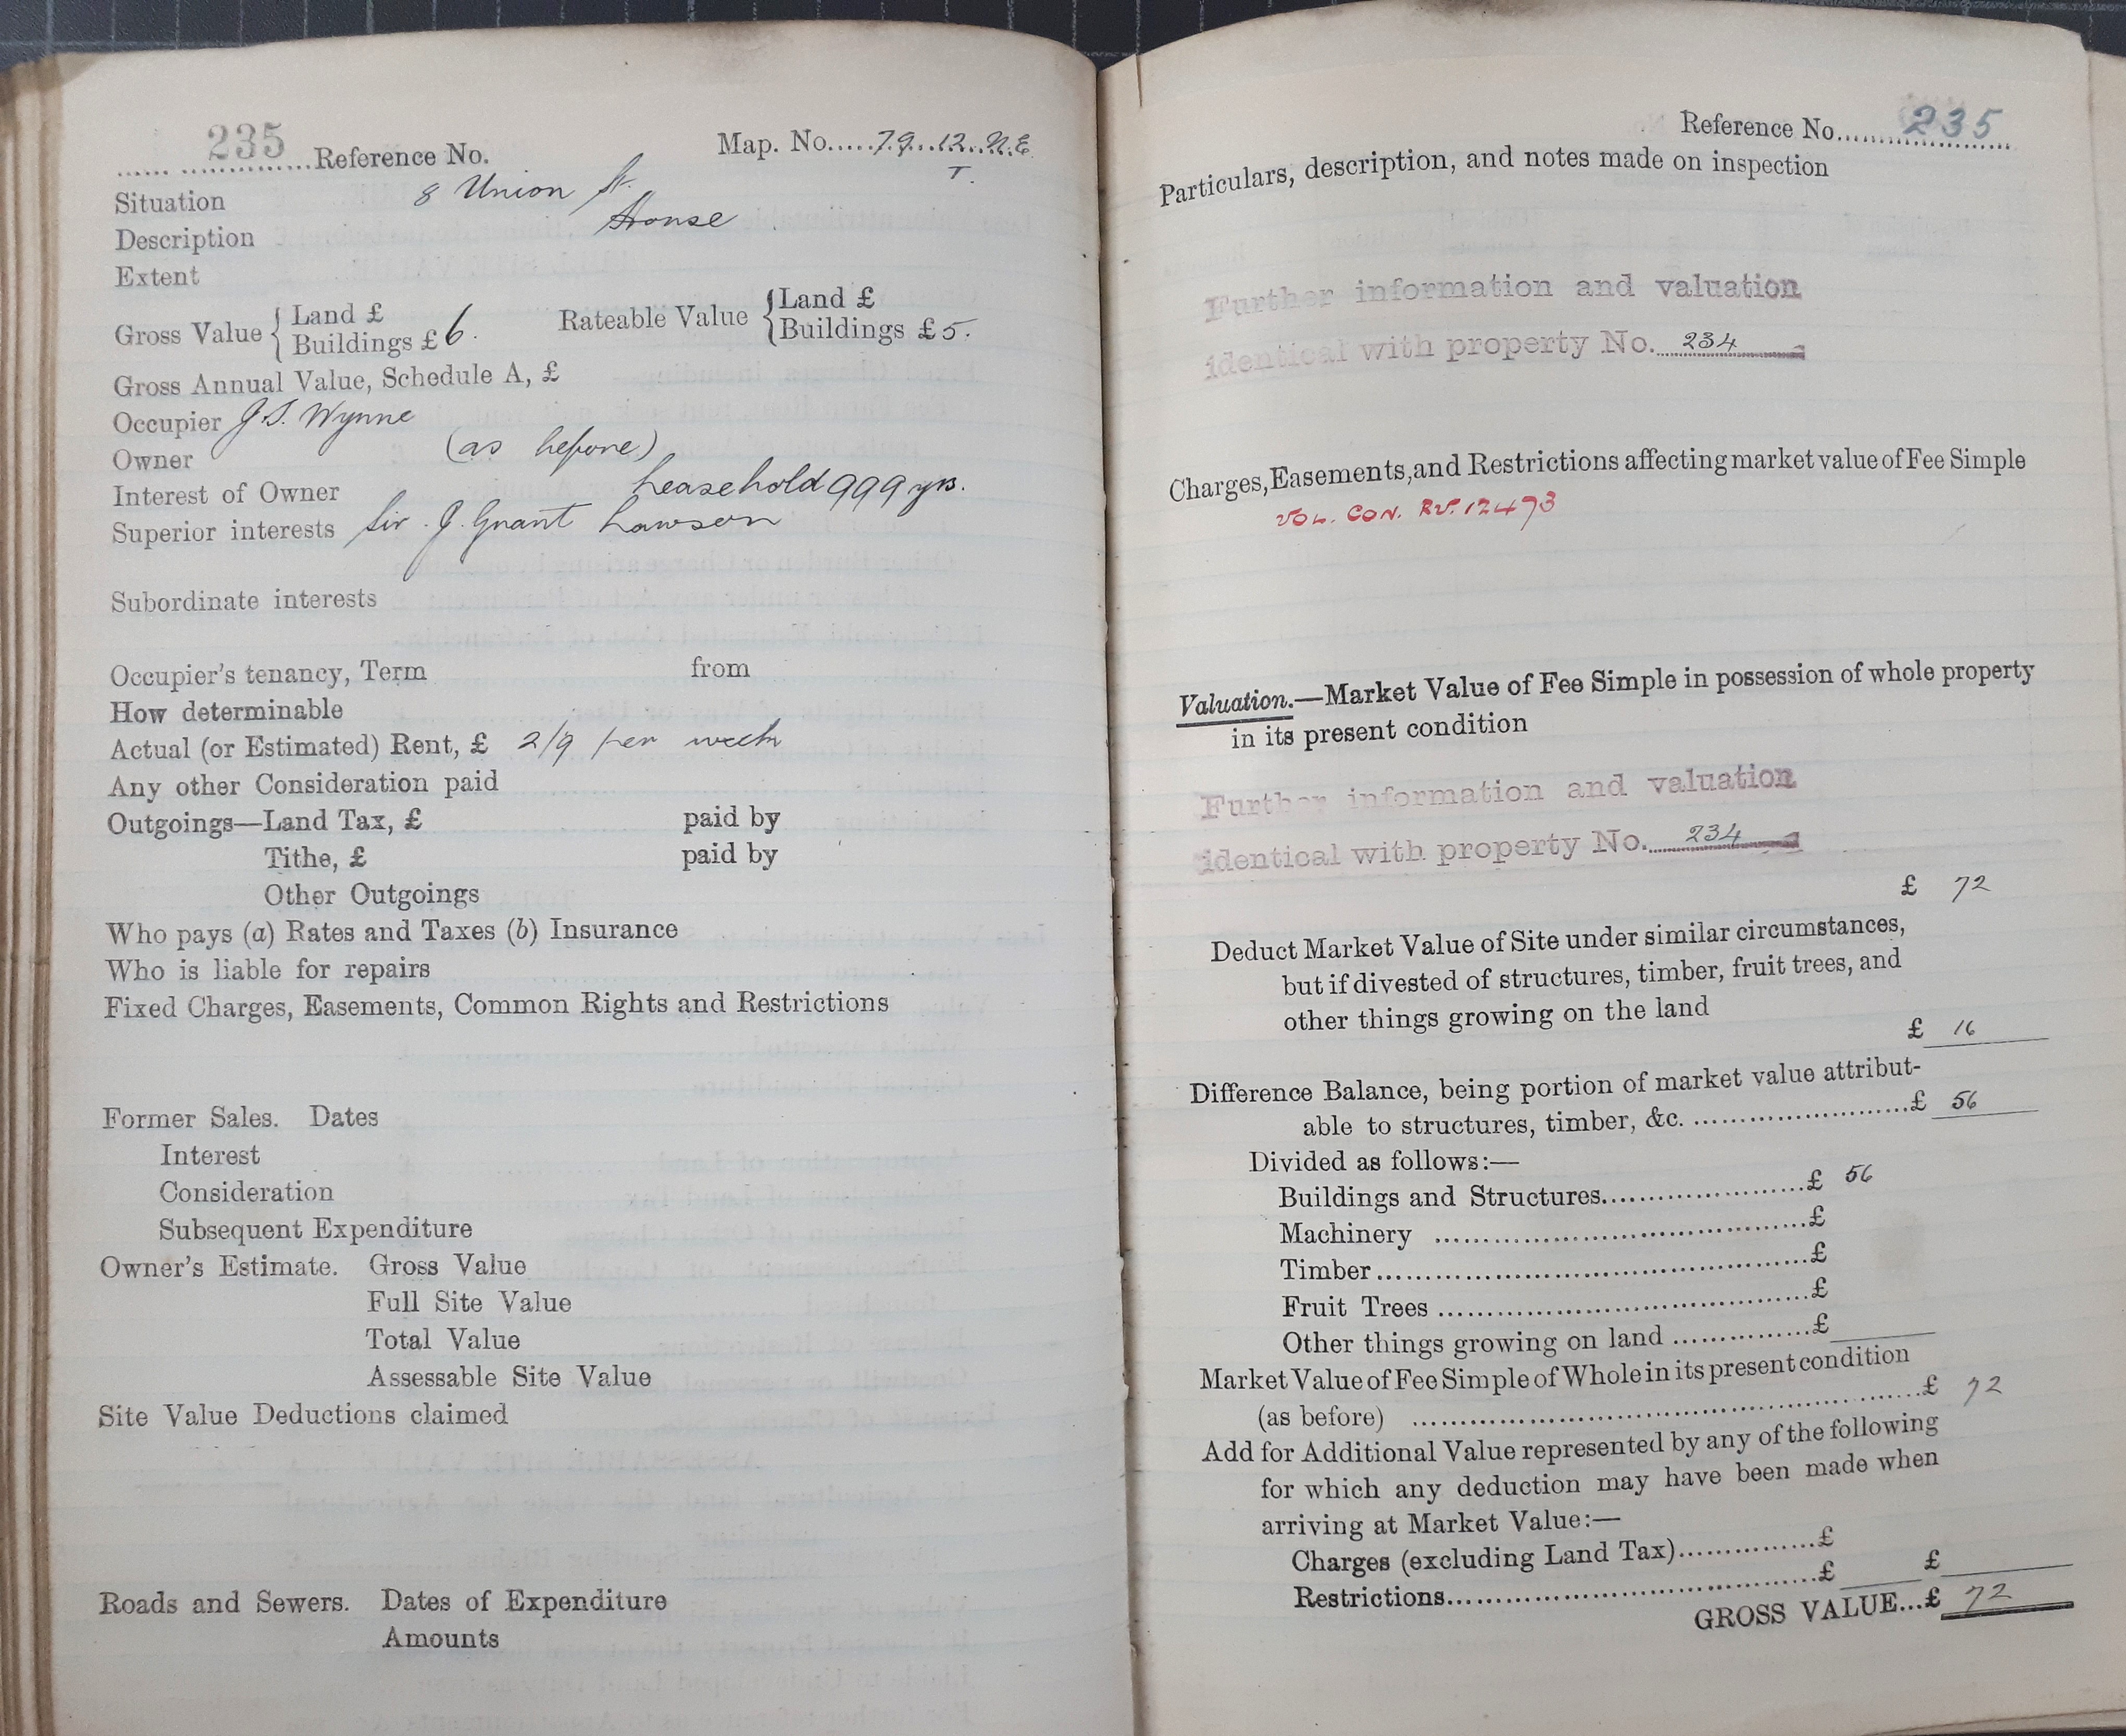 235 Reference No. Map. No. 79.12.N.E.
T.
Situation 8 Union St.
Description House
Extent
Gross Value { Land £
Buildings £ 6. Rateable Value { Land £
Buildings £ 5.
Gross Annual Value, Schedule A, £
Occupier J.S. Wynne
Owner (as before)
Interest of Owner Leasehold 999 yrs.
Superior interests Sir J. Grant Lawson
Subordinate interests
Occupier's tenancy, Term from
How determinable
Actual (or Estimated) Rent, £ 2/9 per week
Any other Consideration paid
Outgoings—Land Tax, £ paid by
Tithe, £ paid by
Other Outgoings
Who pays (a) Rates and Taxes (b) Insurance
Who is liable for repairs
Fixed Charges, Easements, Common Rights and Restrictions
Former Sales. Dates
Interest
Consideration
Subsequent Expenditure
Owner's Estimate. Gross Value
Full Site Value
Total Value
Assessable Site Value
Site Value Deductions claimed
Roads and Sewers. Dates of Expenditure
Amounts
Reference No. 235
Particulars, description, and notes made on inspection
Further information and valuation
identical with property No. 234
Charges, Easements, and Restrictions affecting market value of Fee Simple
VOL. CON. RV. 12473
Valuation.—Market Value of Fee Simple in possession of whole property
in its present condition
Further information and valuation
identical with property No. 234
£ 72
Deduct Market Value of Site under similar circumstances,
but if divested of structures, timber, fruit trees, and
other things growing on the land
£ 16
Difference Balance, being portion of market value attribut-
able to structures, timber, &c. £ 56
Divided as follows:—
Buildings and Structures £ 56
Machinery £
Timber £
Fruit Trees £
Other things growing on land £
Market Value of Fee Simple of Whole in its present condition
(as before) £ 72
Add for Additional Value represented by any of the following
for which any deduction may have been made when
arriving at Market Value:—
Charges (excluding Land Tax) £
Restrictions £ £
GROSS VALUE...£ 72